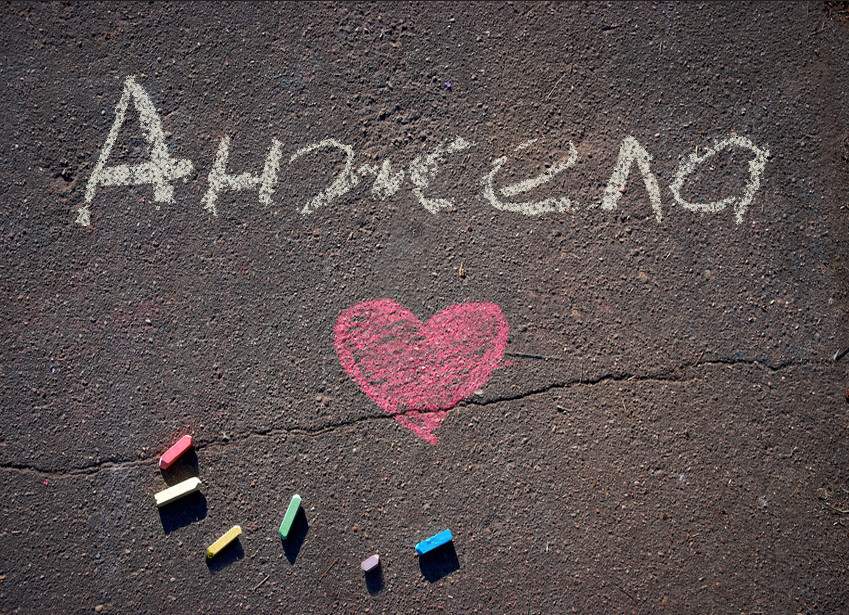 Анжела